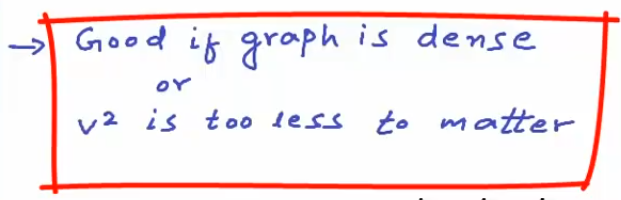 → Good if graph is dense
or
v² is too less to matter